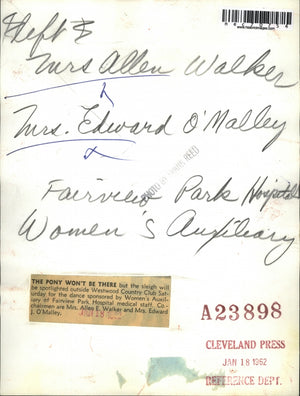 Left
Mrs Allen Walker
Mrs. Edward O'Malley
Fairview Park Hospital
Women's Auxiliary
THE PONY WON'T BE THERE but the sleigh will
be spotlighted outside Westwood Country Club Sat-
urday for the dance sponsored by Women's Auxil-
iary of Fairview Park Hospital medical staff. Co-
chairmen are Mrs. Allen E. Walker and Mrs. Edward
J. O'Malley.
A23898
CLEVELAND PRESS
JAN 18 1962
REFERENCE DEPT.